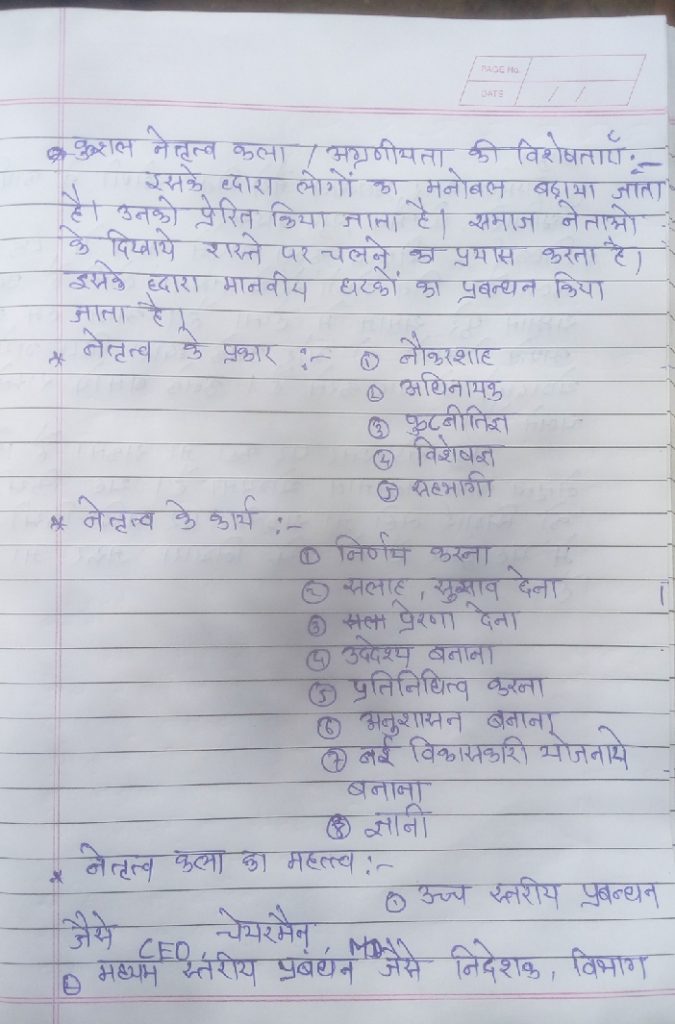 PAGE No.
DATE / /
* कुशल नेतृत्व कला / अग्रणीयता की विशेषताएँ :-
इसके द्वारा लोगों का मनोबल बढ़ाया जाता
है। उनको प्रेरित किया जाता है। समाज नेताओ
के दिखाये रास्ते पर चलने का प्रयास करता है।
इसके द्वारा मानवीय घटकों का प्रबन्धन किया
जाता है।
* नेतृत्व के प्रकार :- ① नौकरशाह
② अधिनायक
③ कुटनीतिज्ञ
④ विशेषज्ञ
⑤ सहभागी
* नेतृत्व के कार्य :-
① निर्णय करना
② सलाह, सुझाव देना
③ प्रेरणा देना
④ उददेश्य बनाना
⑤ प्रतिनिधित्व करना
⑥ अनुशासन बनाना
⑦ नई विकासकारी योजनाये
बनाना
⑧ ज्ञानी
* नेतृत्व कला का महत्त्व :-
① उच्च स्तरीय प्रबन्धन
जैसे CEO, चेयरमैन, MD
② मध्यम स्तरीय प्रबंधन जैसे निदेशक, विभाग